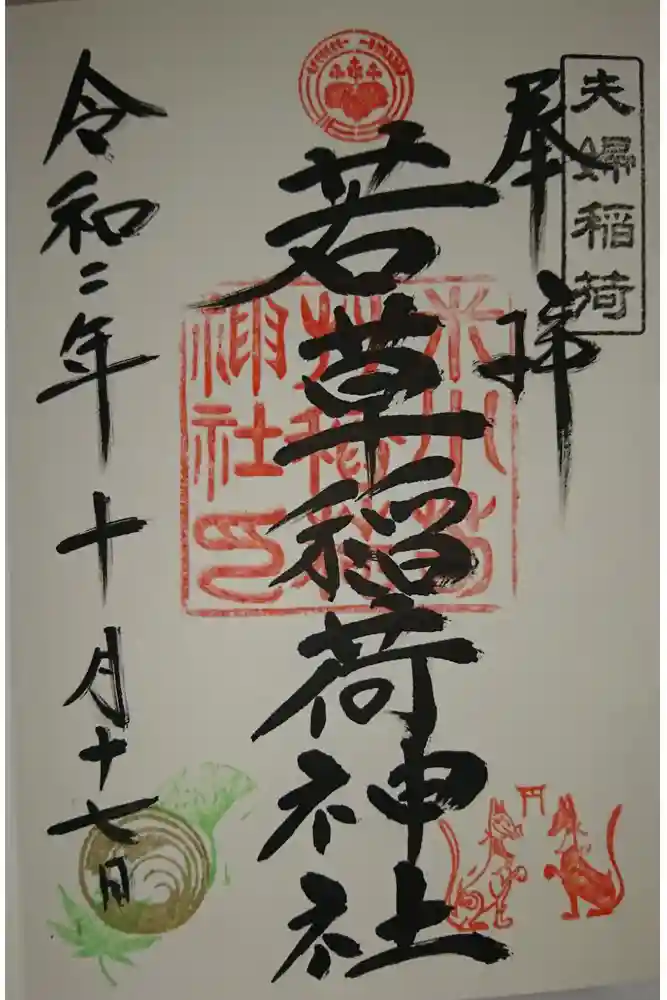 夫婦稲荷
奉拝
若草稲荷神社
神社印
令和二年十月十七日